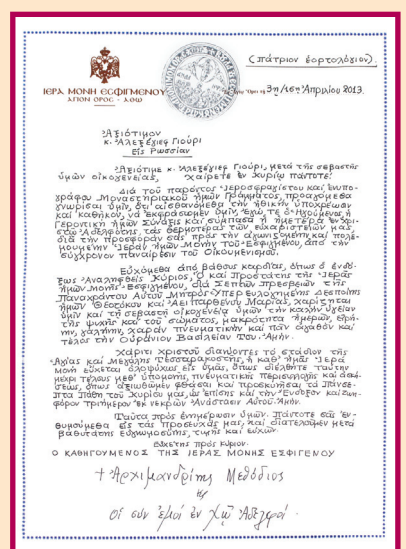 (πάτριον ἑορτολόγιον).
ΙΕΡΑ ΜΟΝΗ ΕΣΦΙΓΜΕΝΟΥ
ΑΓΙΟΝ ΟΡΟΣ - ΑΘΩ
3ῃ/16ῃ Ἀπριλίου 2013.
Ἀξιότιμον
κ. Ἀλεξέγιεφ Γιούρι
εἰς Ρωσσίαν
Ἀξιότιμε κ. Ἀλεξέγιεφ Γιούρι, μετά τῆς σεβαστῆς
ὑμῶν οἰκογενείας, χαίρετε ἐν Κυρίῳ πάντοτε!
Διά τοῦ παρόντος Ἱεροσφραγίστου καί ἐνυπο-
γράφου Μοναστηριακοῦ ἡμῶν Γράμματος, προαγόμεθα
γνωρίσαι ὑμῖν, ὅτι αἰσθανόμεθα τήν ἠθικήν ὑποχρέωσιν
καί καθῆκον, νά ἐκφράσωμεν ὑμῖν, Ἐγώ, τε ὁ Ἡγούμενος, ἡ
Γεροντική ἡμῶν Σύναξις καί σύμπασα ἡ ἡμετέρα ἐν Χρι-
στῷ Ἀδελφότης, τάς θερμοτέρας τῶν εὐχαριστειῶν μας,
διά τήν προσφοράν σας πρός τήν ἀγωνιζομένην καί πολε-
μουμένην Ἱεράν ἡμῶν Μονήν τοῦ Ἐσφιγμένου, ἀπό τήν
σύγχρονον παναίρεσιν τοῦ Οἰκουμενισμοῦ.
Εὐχόμεθα ἀπό βάθους καρδίας, ὅπως ὁ ἐνδό-
ξως Ἀναληφθείς Κύριος, ὁ καί Προστάτης τῆς Ἱερᾶς
ἡμῶν Μονῆς Ἐσφιγμένου, διά Σεπτῶν πρεσβειῶν τῆς
Παναχράντου Αὐτοῦ Μητρός Ὑπερευλογημένης Δεσποίνης
ἡμῶν Θεοτόκου καί Ἀειπαρθένου Μαρίας, χαρίζηται
ὑμῖν καί τῇ σεβαστῇ οἰκογενείᾳ ὑμῶν τήν καλήν ὑγείαν
τῆς ψυχῆς καί τοῦ σώματος, μακρότητα ἡμερῶν, εἰρή-
νην, γαλήνην, χαράν πνευματικήν καί πᾶν ἀγαθόν καί
τέλος τήν Οὐράνιον Βασιλείαν Του. Ἀμήν.
Χάριτι Χριστοῦ διανύοντες τό στάδιον τῆς
Ἁγίας καί Μεγάλης Τεσσαρακοστῆς, ἡ καθ' ἡμᾶς Ἱερά
Μονή εὔχεται ὁλοψύχως εἰς ὑμᾶς, ὅπως διέλθητε ταύτην
μέχρι τέλους μεθ' ὑπομονῆς, πνευματικῆς περισυλλογῆς καί ἀσκή-
σεως, ὅπως ἀξιωθῶμεν φθάσαι καί προσκυνῆσαι τά Πάνσε-
πτα Πάθη τοῦ Κυρίου μας, ὡς ἐπίσης καί τήν Ἔνδοξον καί Ζωη-
φόρον τριήμερον ἐκ νεκρῶν Ἀνάστασιν Αὐτοῦ. Ἀμήν.
Ταῦτα πρός ἐνημέρωσιν ὑμῶν. Πάντοτε σᾶς ἐν-
θυμούμεθα εἰς τάς προσευχάς μας, καί διατελοῦμεν μετά
βαθυτάτης εὐγνωμοσύνης, τιμῆς καί εὐχῶν.
εὐχέτης πρός Κύριον.
Ο ΚΑΘΗΓΟΥΜΕΝΟΣ ΤΗΣ ΙΕΡΑΣ ΜΟΝΗΣ ΕΣΦΙΓΜΕΝΟΥ
+ Ἀρχιμανδρίτης Μεθόδιος
οἱ σύν ἐμοί ἐν Χῷ Ἀδελφοί.